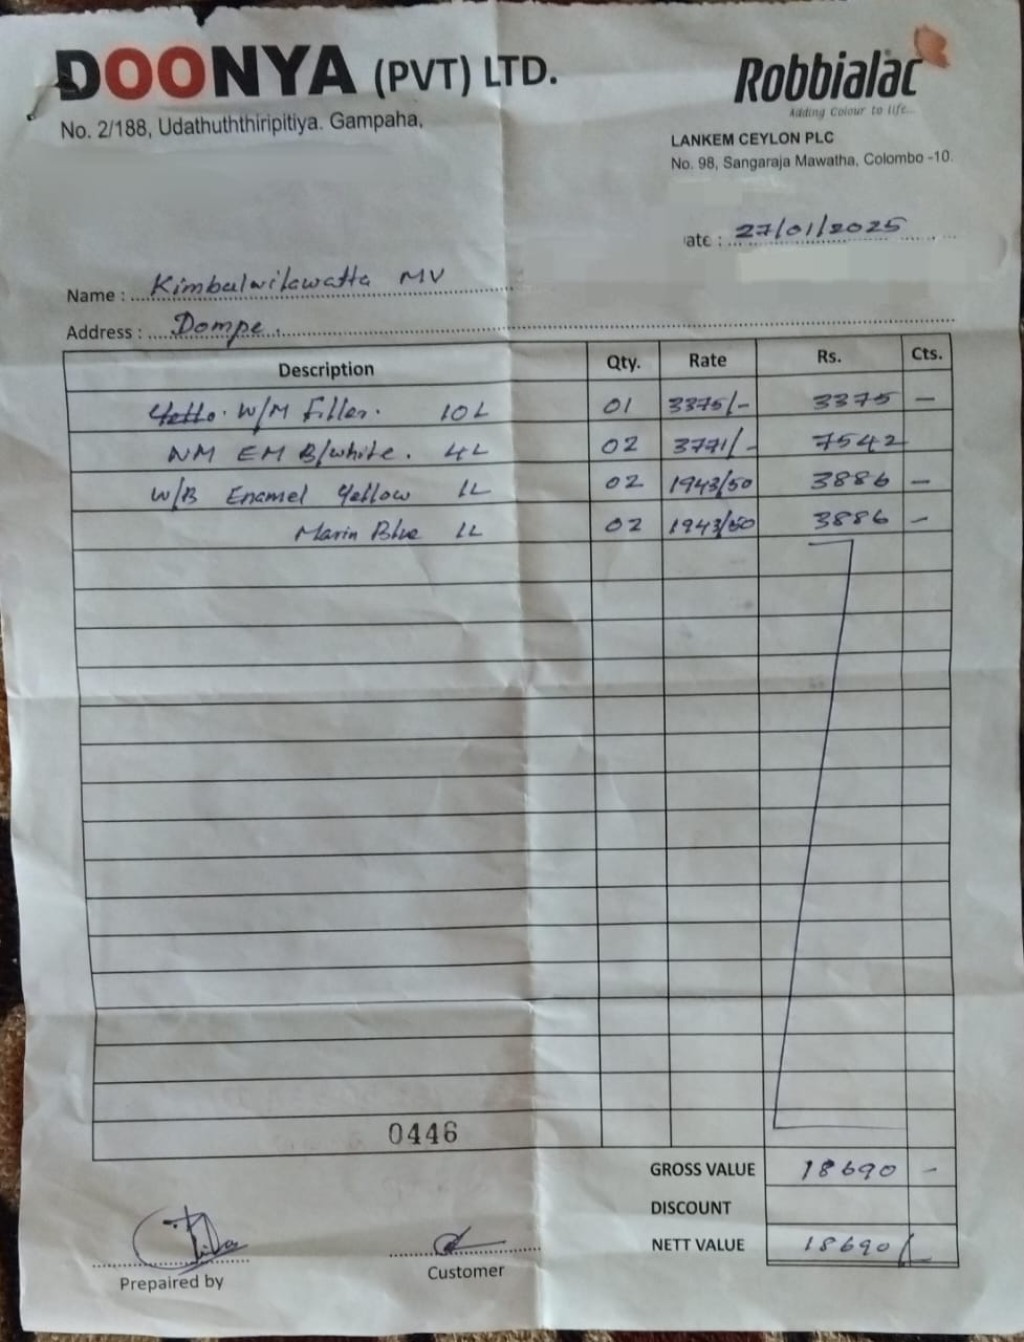 DOONYA (PVT) LTD.
No. 2/188, Udathuththiripitiya. Gampaha,
Robbialac
Adding Colour to life...
LANKEM CEYLON PLC
No. 98, Sangaraja Mawatha, Colombo -10.
ate : 27/01/2025
Name : Kimbulwilawatta MV
Address : Dompe.
Description Qty. Rate Rs. Cts.
W/M Filler. 10L 01 3375/- 3375 -
NM EM B/white. 4L 02 3771/- 7542
W/B Enamel Yellow 1L 02 1943/50 3886 -
Marin Blue 1L 02 1943/50 3886 -
0446
GROSS VALUE 18690 -
DISCOUNT
NETT VALUE 18690/-
Prepaired by
Customer